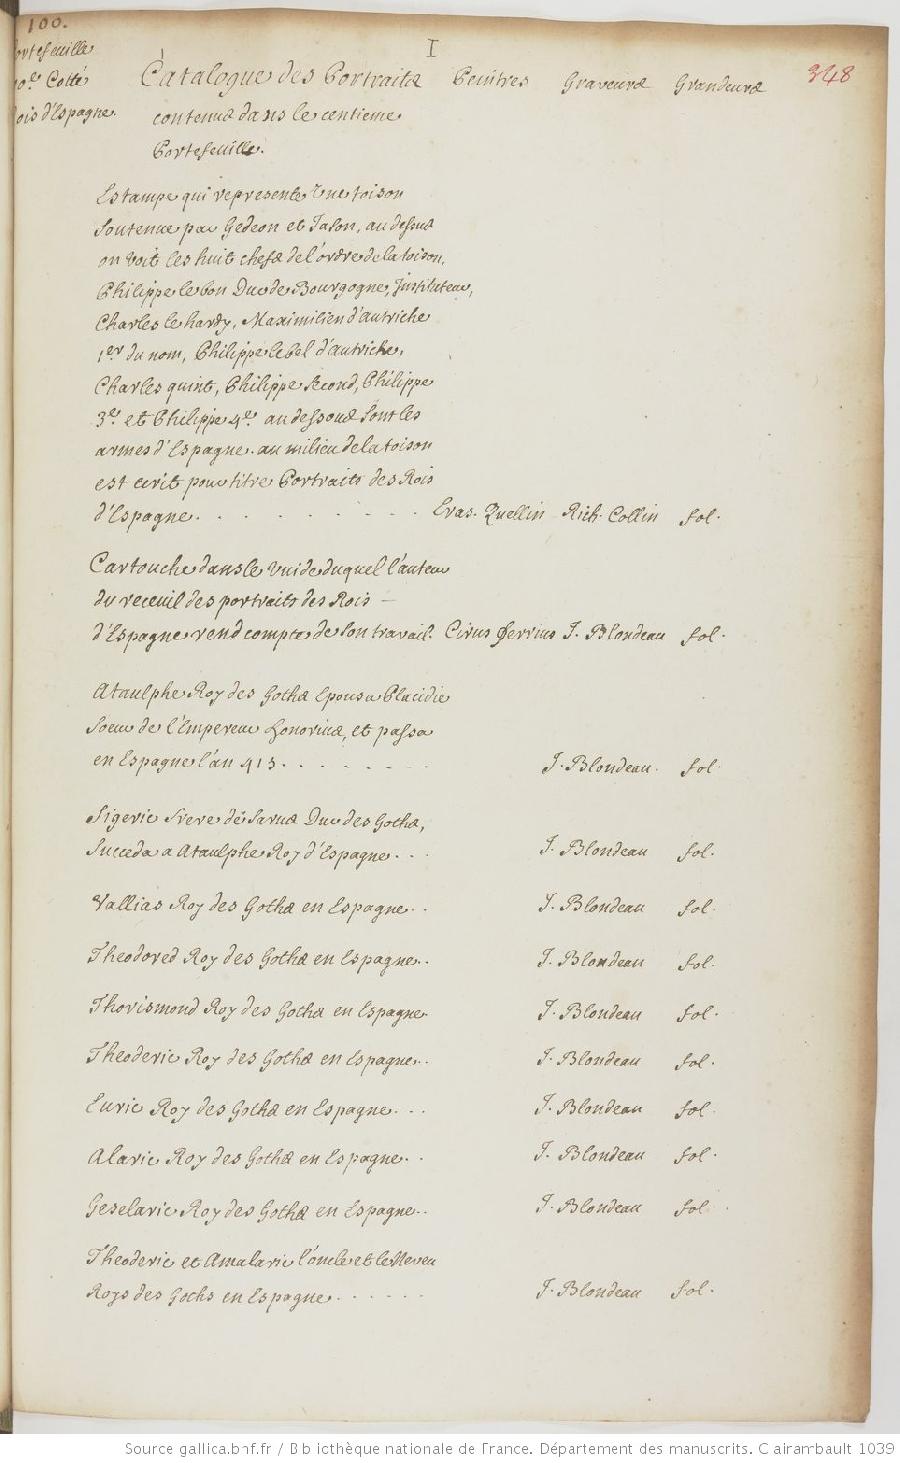 100.
I
348
ortefeuille
0e. Cotté
ois d'Espagne.
Catalogue des Portraits Peintres Graveurs Grandeurs
contenus dans le centieme
Portefeuille.
Estampe qui represente Une toison
Soutenue par Gedeon et Jason, au dessus
on voit les huit chefs de l'ordre de la toison,
Philippe le bon Duc de Bourgogne, Instituteur,
Charles le hardy, Maximilien d'autriche
1er du nom, Philippe le bel d'autriche,
Charles quint, Philippe Second, Philippe
3e. et Philippe 4e. au dessous Sont les
armes d'Espagne. au milieu de la toison
est ecrit pour titre Portraits des Rois
d'Espagne. . . . . . . . . Eras. Quellin Rich. Collin fol.
Cartouche dans le Vuide duquel l'auteur
du receuil des portraits des Rois —
d'Espagne rend compte de Son travail. Cirus ferrius J. Blondeau fol.
Ataulphe Roy des Goths Epousa Placidie
Soeur de l'Empereur honorius, et passa
en Espagne l'an 413. . . . . . . . J. Blondeau. fol.
Sigeric frere de Sarus Duc des Goths,
Succeda a Ataulphe Roy d'Espagne. . . J. Blondeau fol.
Vallias Roy des Goths en Espagne. . J. Blondeau fol.
Theodored Roy des Goths en Espagne. . J. Blondeau fol.
Thorismond Roy des Goths en Espagne J. Blondeau fol.
Theoderic Roy des Goths en Espagne. . J. Blondeau fol.
Euric Roy des Goths en Espagne. . . J. Blondeau fol.
Alaric Roy des Goths en Espagne. . J. Blondeau fol.
Geselaric Roy des Goths en Espagne. . J. Blondeau fol.
Theoderic et Amalaric l'oncle et le Neveu
Roys des Goths en Espagne. . . . . . J. Blondeau fol.
Source gallica.bnf.fr / Bibliothèque nationale de France. Département des manuscrits. Clairambault 1039